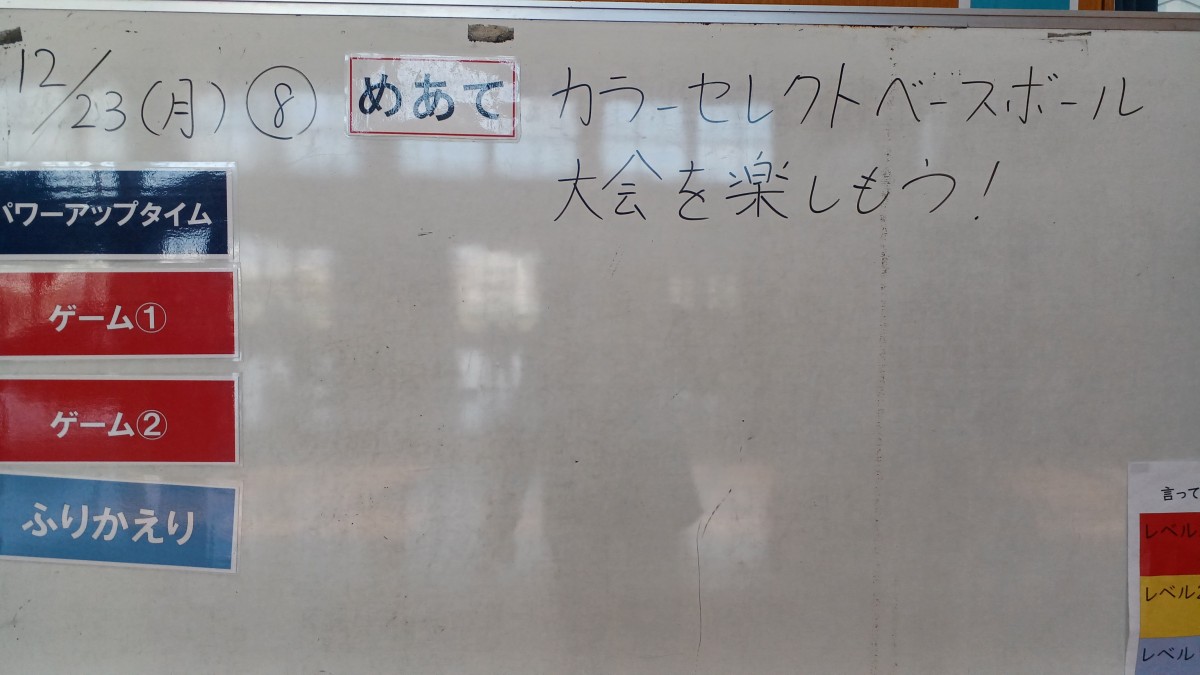 12/23(月) ⑧ めあて カラーセレクトベースボール
大会を楽しもう!
パワーアップタイム
ゲーム①
ゲーム②
ふりかえり
言って
レベル
レベル2
レベル